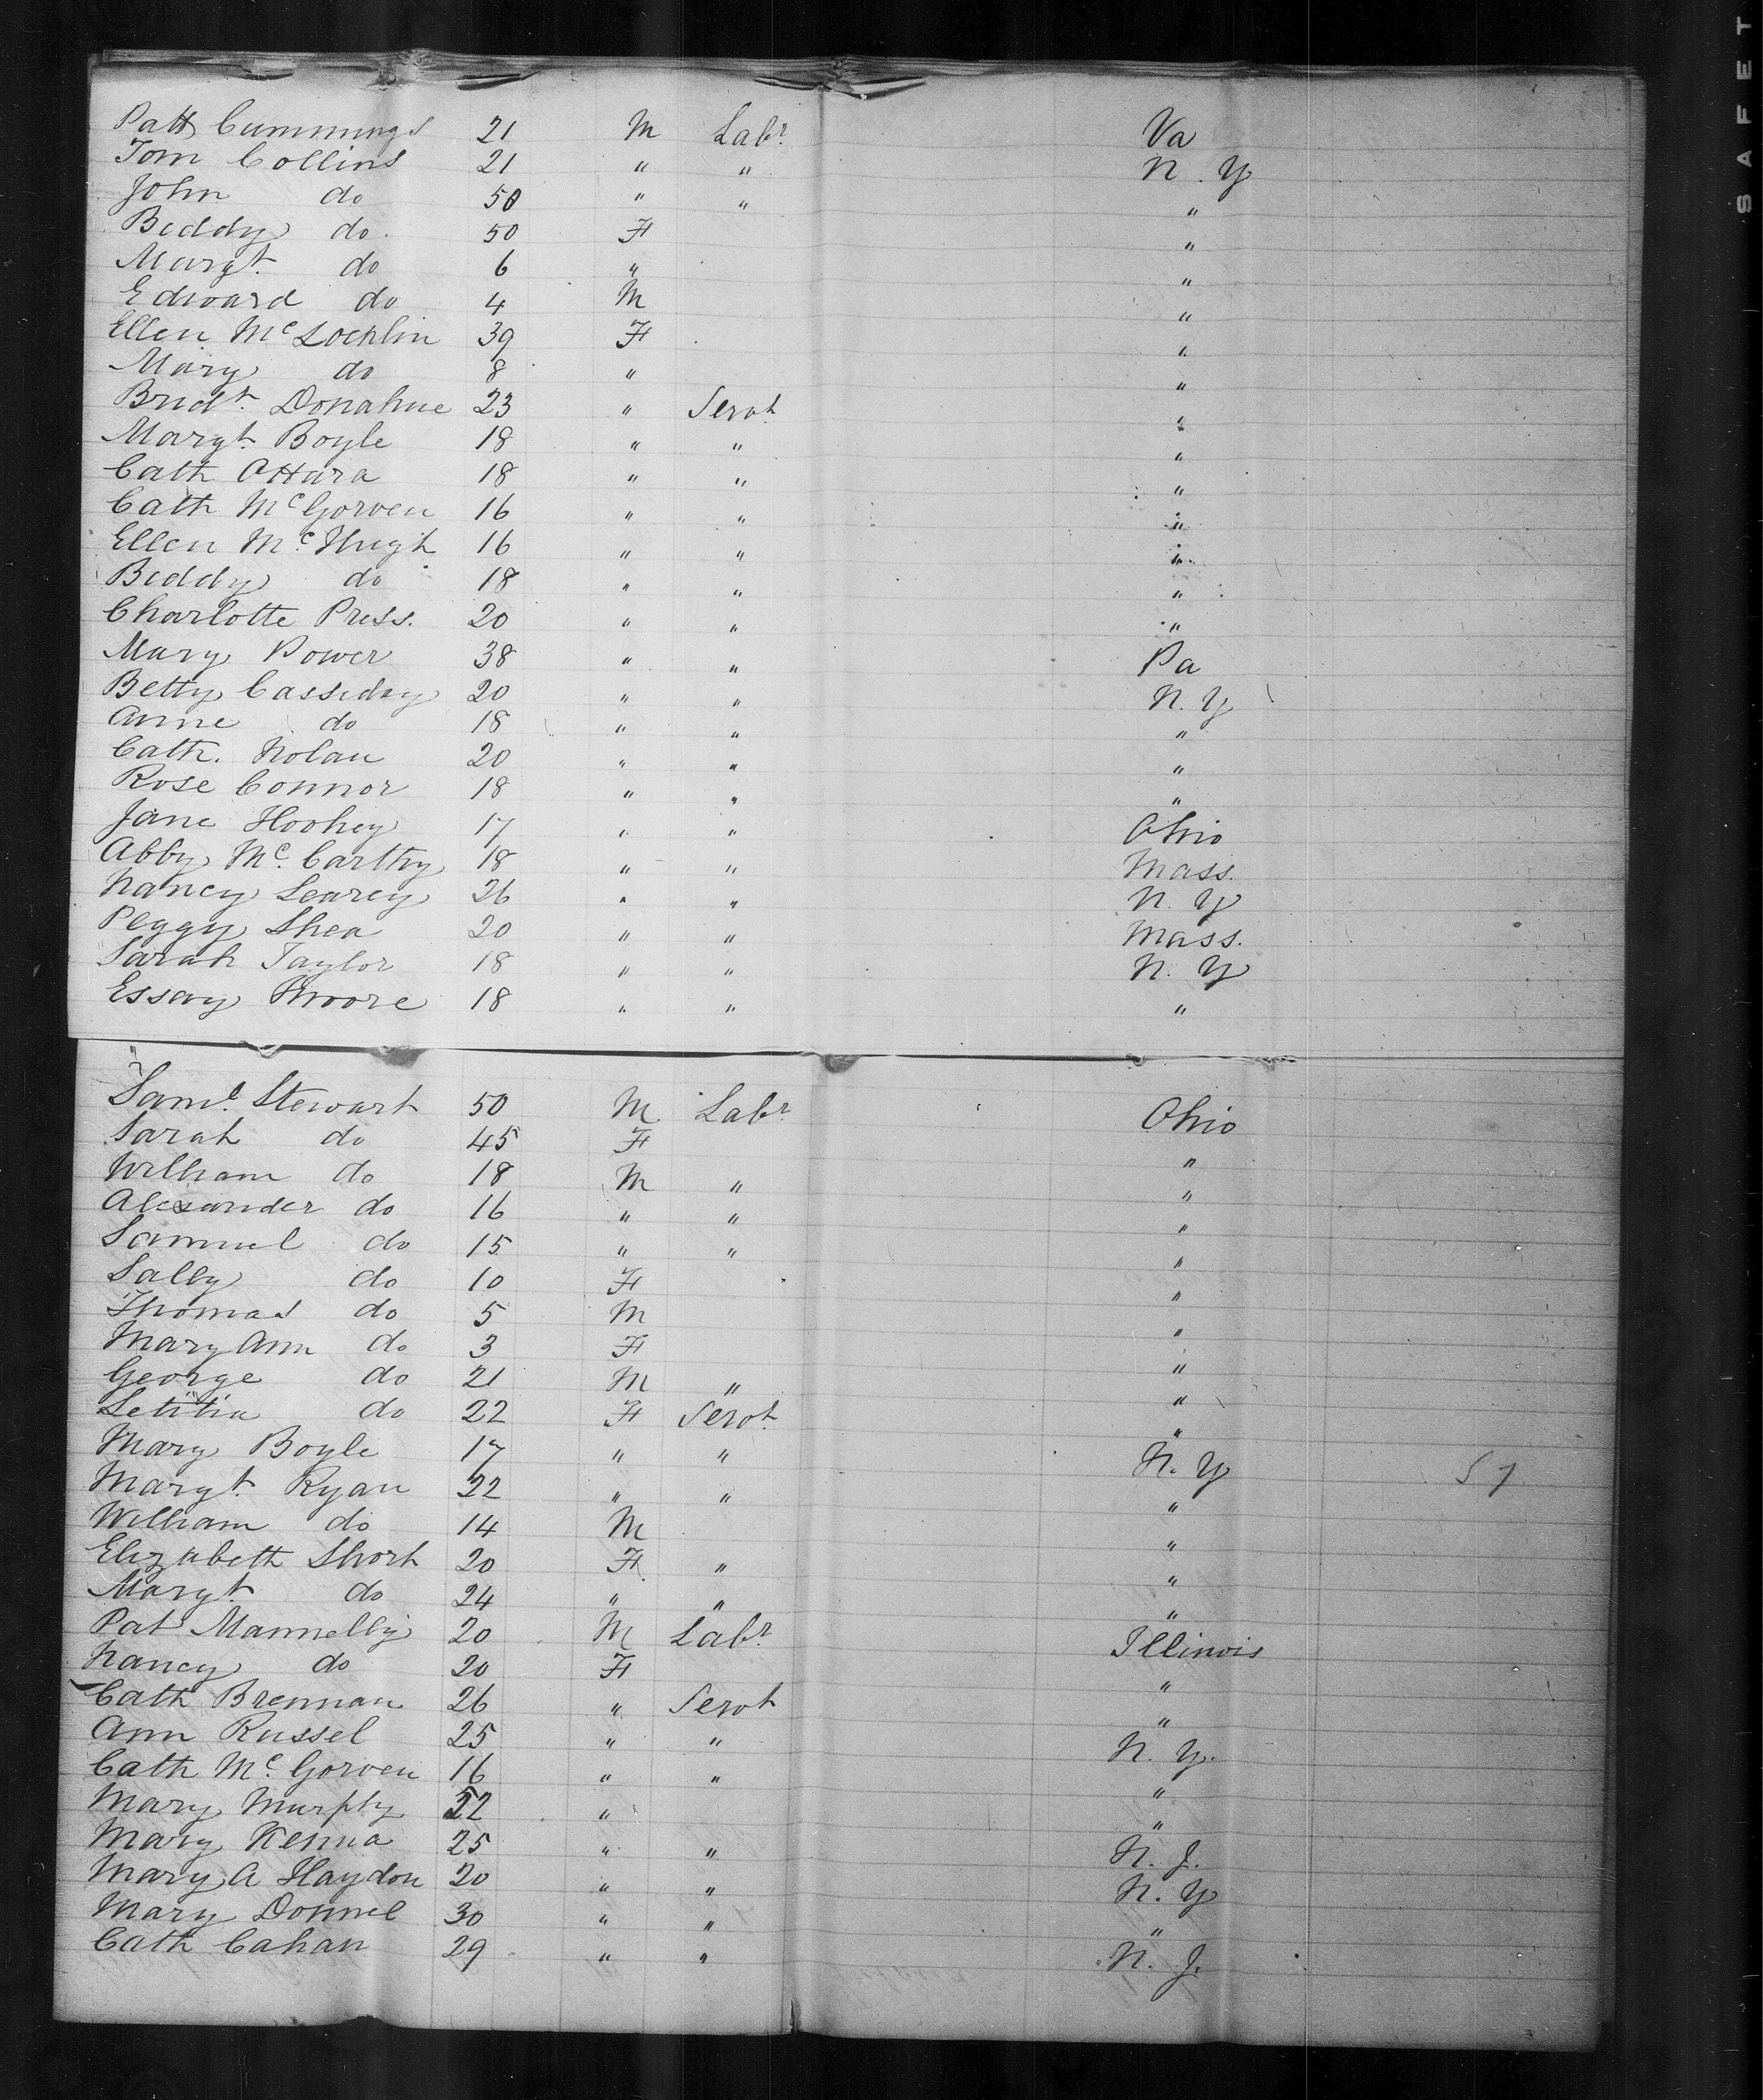 SAFET
Patt Cummings 21 M Labr. Va
Tom Collins 21 " " N. Y
John do 50 " " "
Biddy do. 50 F "
Margt. do 6 " "
Edward do 4 M "
Ellen McLochlin 39 F "
Mary do 8 " "
Bridt. Donahue 23 " Servt. "
Margt. Boyle 18 " " "
Cath OHara 18 " " "
Cath McGorven 16 " " "
Ellen McHugh 16 " " "
Biddy do 18 " " "
Charlotte Press. 20 " " "
Mary Power 38 " " Pa
Betty Cassiday 20 " " N. Y
Anne do 18 " " "
Cath. Nolan 20 " " "
Rose Connor 18 " " "
Jane Hoohey 17 " " Ohio
Abby Mc. Carthy 18 " " Mass.
Nancy Learey 26 " " N. Y
Peggy Shea 20 " " Mass.
Sarah Taylor 18 " " N. Y
Essay Moore 18 " " "
Saml. Stewart 50 M Labr. Ohio
Sarah do 45 F "
William do 18 M " "
Alexander do 16 " " "
Samuel do 15 " " "
Sally do 10 F "
Thomas do 5 M "
Mary Ann do 3 F "
George do 21 M " "
Letitia do 22 F Servt. "
Mary Boyle 17 " " N. Y 57
Margt. Ryan 22 " " "
William do 14 M "
Elizabeth Short 20 F " "
Margt. do 24 " " "
Pat Mannelly 20 M Labr. Illinois
Nancy do 20 F "
Cath Brennan 26 " Servt "
Ann Russel 25 " " N. Y.
Cath Mc. Gorven 16 " " "
Mary Murphy 22 " "
Mary Kenna 25 " " N. J.
Mary A Haydon 20 " " N. Y
Mary Donnel 30 " " "
Cath Cahan 29 " " N. J.